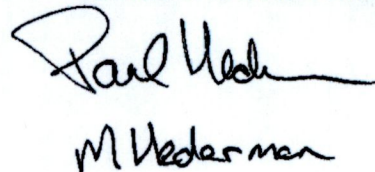 Paul Heder
M Hederman